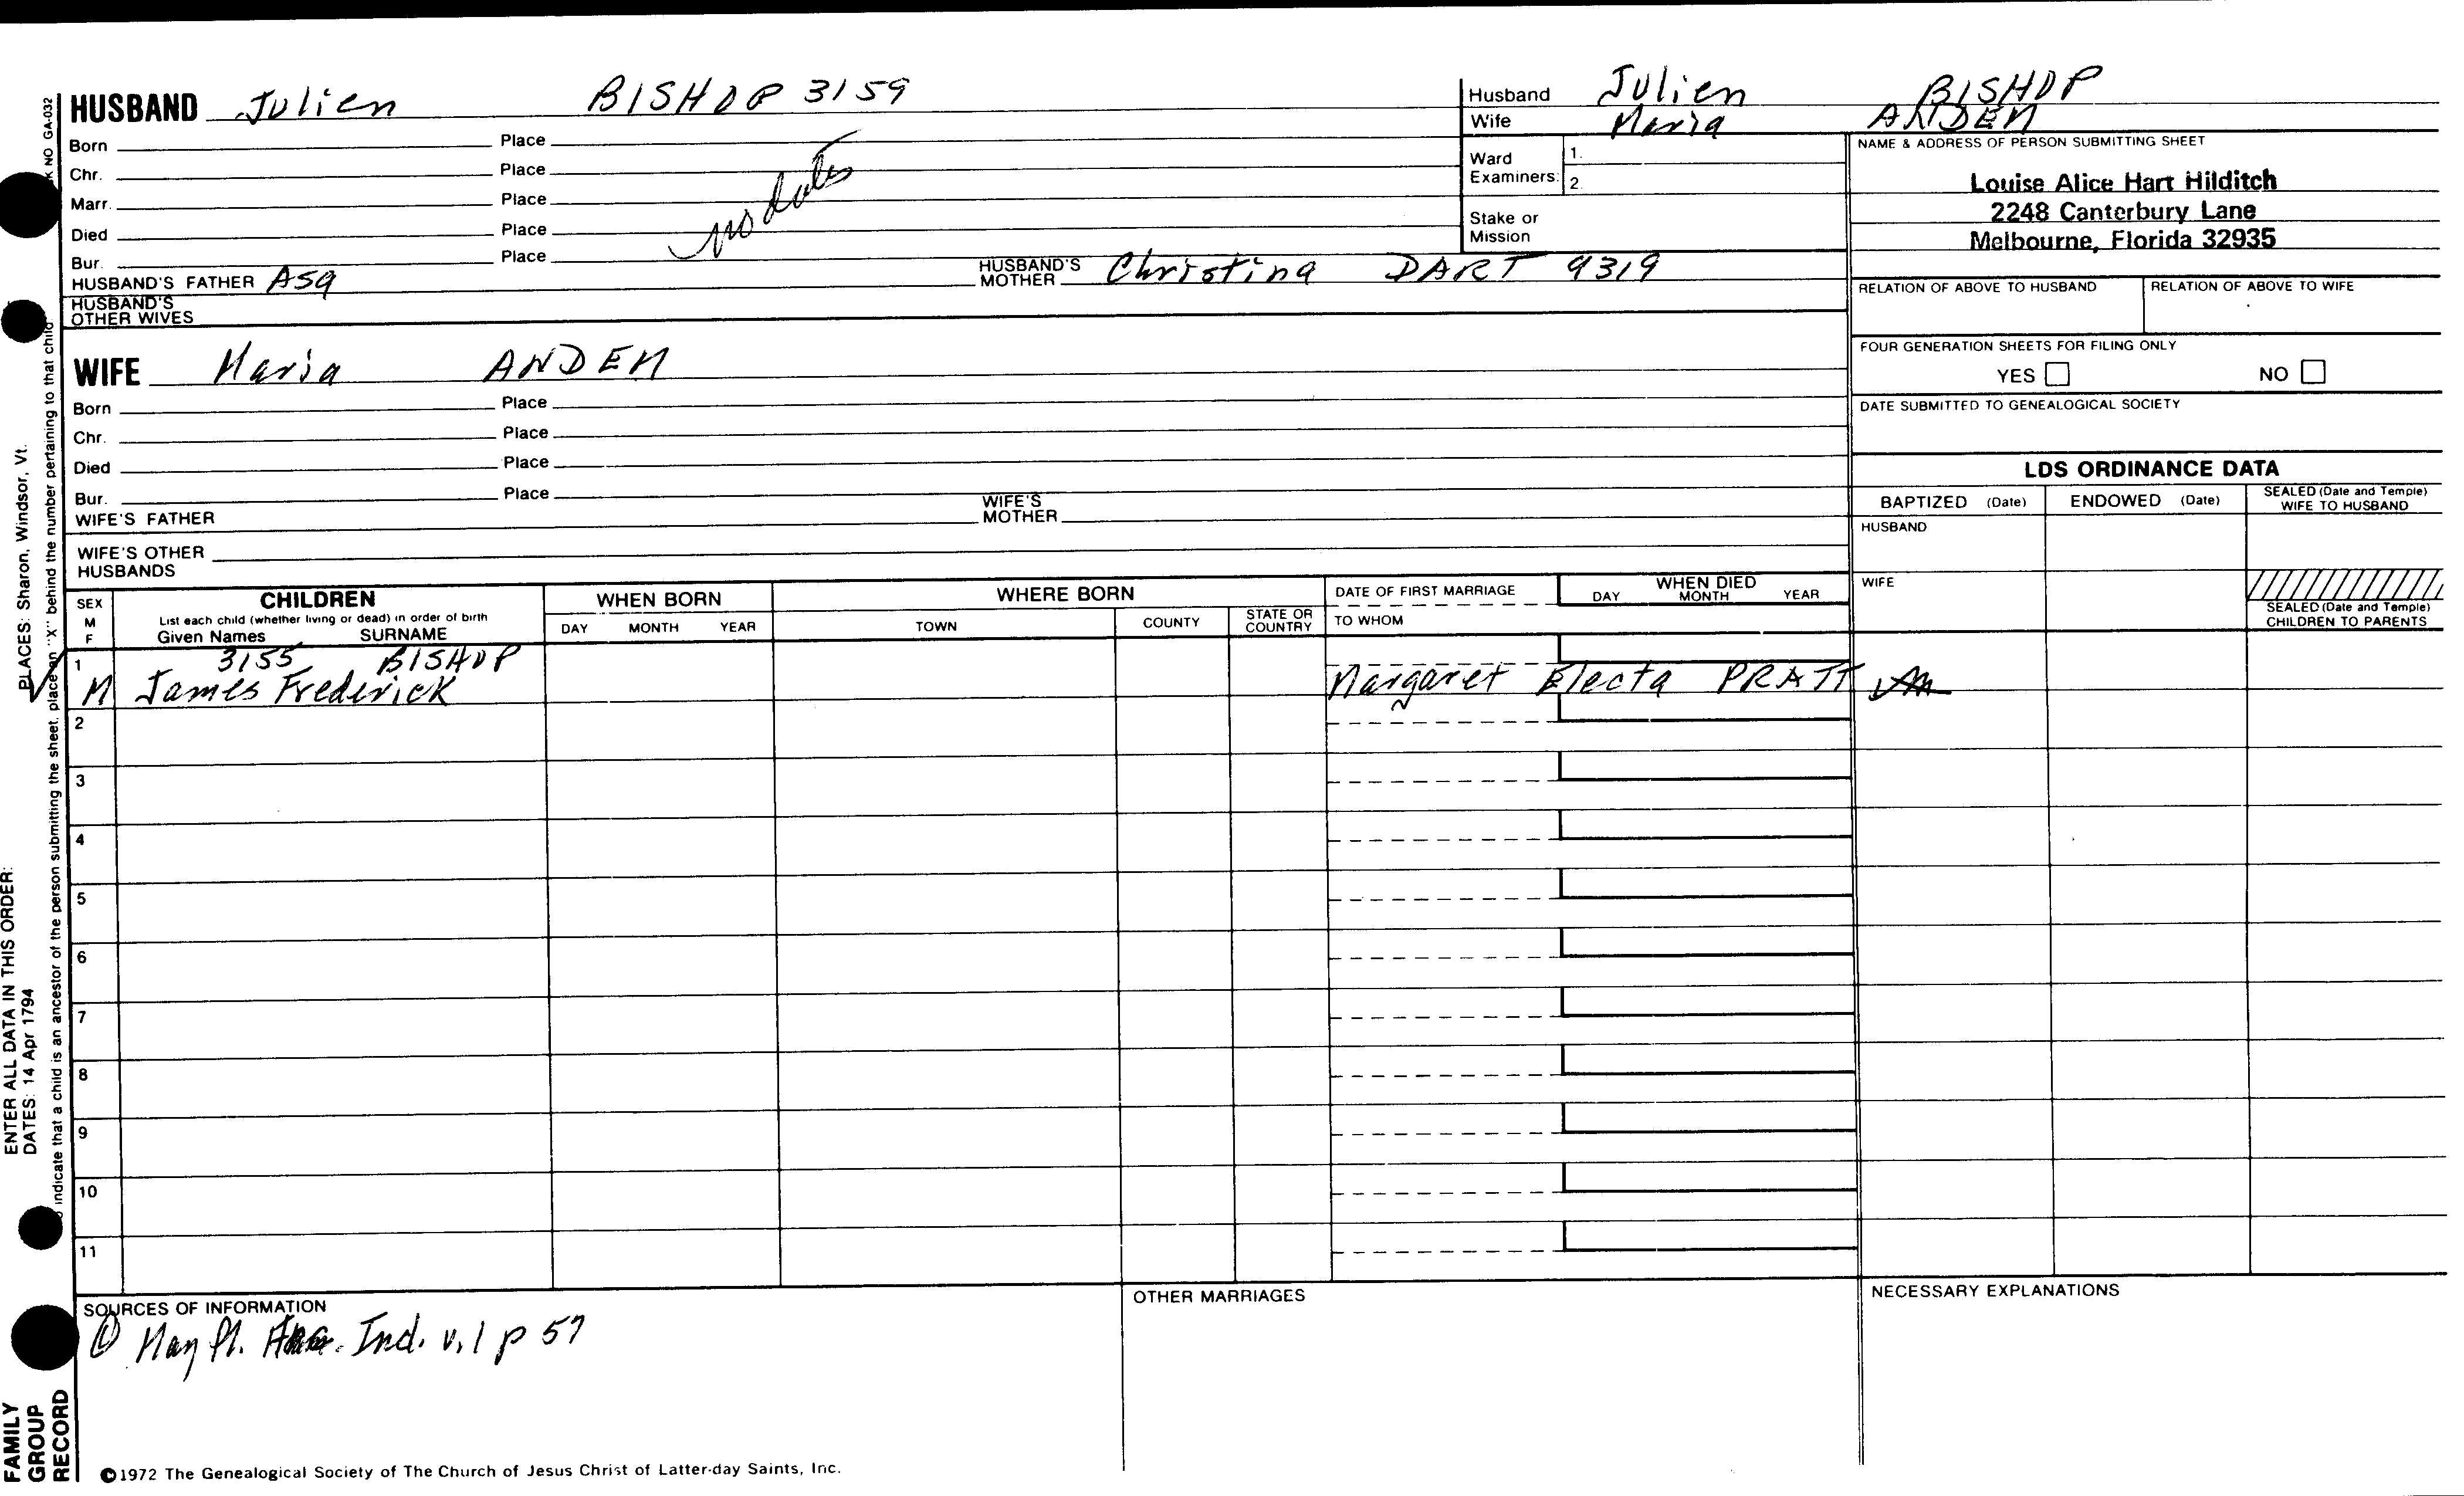 HUSBAND Julien BISHOP 3159
Husband Julien BISHOP
Wife Maria ANDEN
Born Place
Chr. Place
Marr. Place
Died Place
Bur. Place
no dates
Ward Examiners: 1.
2.
Stake or Mission
NAME & ADDRESS OF PERSON SUBMITTING SHEET
Louise Alice Hart Hilditch
2248 Canterbury Lane
Melbourne, Florida 32935
HUSBAND'S FATHER Asa HUSBAND'S MOTHER Christina DART 9319
HUSBAND'S OTHER WIVES
RELATION OF ABOVE TO HUSBAND RELATION OF ABOVE TO WIFE
FOUR GENERATION SHEETS FOR FILING ONLY
YES NO
DATE SUBMITTED TO GENEALOGICAL SOCIETY
WIFE Maria ANDEN
Born Place
Chr. Place
Died Place
Bur. Place
WIFE'S FATHER WIFE'S MOTHER
WIFE'S OTHER HUSBANDS
LDS ORDINANCE DATA
BAPTIZED (Date) ENDOWED (Date) SEALED (Date and Temple) WIFE TO HUSBAND
HUSBAND
WIFE
SEALED (Date and Temple) CHILDREN TO PARENTS
SEX M F
CHILDREN
List each child (whether living or dead) in order of birth
Given Names SURNAME
WHEN BORN
DAY MONTH YEAR
WHERE BORN
TOWN COUNTY STATE OR COUNTRY
DATE OF FIRST MARRIAGE
TO WHOM
WHEN DIED
DAY MONTH YEAR
1 3155 BISHOP
M James Frederick Margaret Electa PRATT
2
3
4
5
6
7
8
9
10
11
SOURCES OF INFORMATION
① May fl. Ind. v. 1 p 57
OTHER MARRIAGES
NECESSARY EXPLANATIONS
©1972 The Genealogical Society of The Church of Jesus Christ of Latter-day Saints, Inc.
FAMILY GROUP RECORD
ENTER ALL DATA IN THIS ORDER:
DATES: 14 Apr 1794
PLACES: Sharon, Windsor, Vt.
indicate that a child is an ancestor of the person submitting the sheet, place an "X" behind the number pertaining to that child
NO GA-032